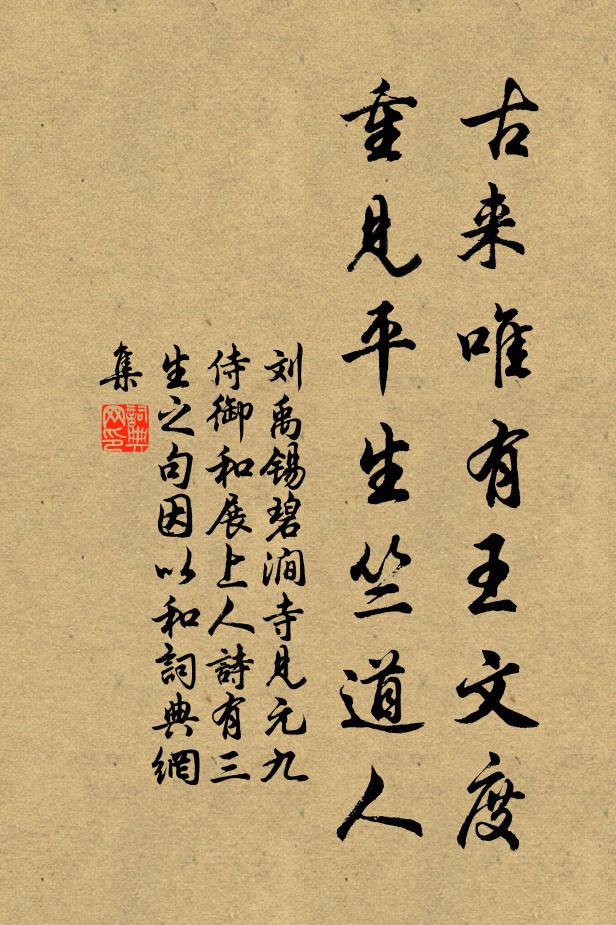 古来唯有王文度
重見平生竺道人
刘禹锡碧涧寺見元九
侍御和展上人詩有三
生之句因以和詞典網
集
詞典网印